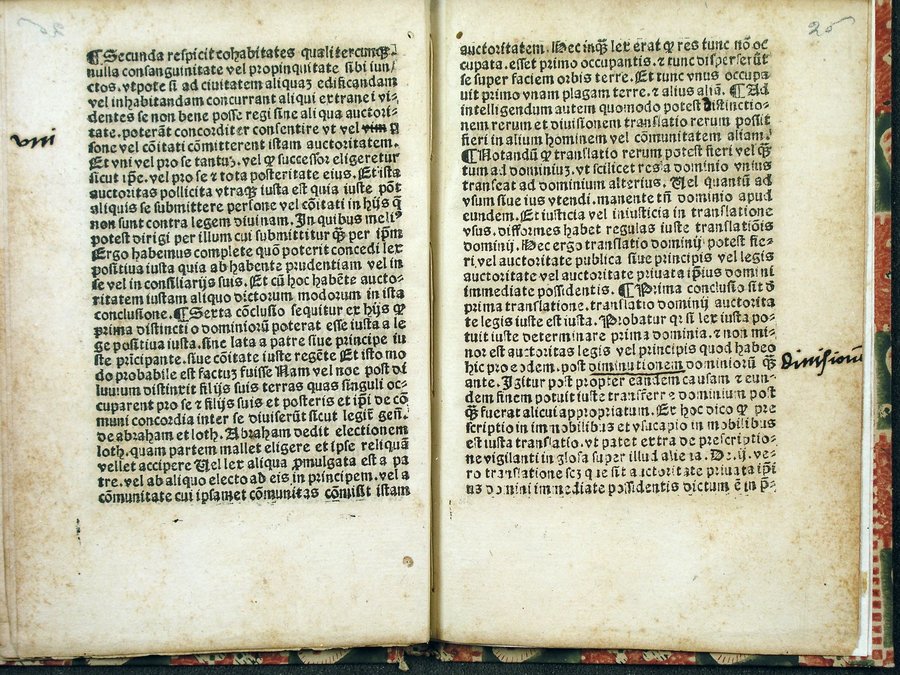 25
¶ Secunda respicit cohabitates qualitercunqꝫ.
nulla consanguinitate vel propinquitate sibi iun
ctos. vtpote si ad ciuitatem aliquaꝫ edificandam
vel inhabitandam concurrant aliqui extranei vi⸗
dentes se non bene posse regi sine aliqua auctori⸗
tate. poterāt concorditer consentire vt vel vim ꝑ
sone vel cōitati cōmitterent istam auctoritatem.
vni
Et vni vel pro se tantuꝫ. vel ꝙ successor eligeretur
sicut ip̄e. vel pro se ⁊ tota posteritate eius. Et ista
auctoritas pollicita vtraqꝫ iusta est quia iuste pōt
aliquis se submittere persone vel cōitati in hijs q̄
non sunt contra legem diuinam. In quibus meliꝰ
potest dirigi per illum cui submittitur qꝫ per ip̄m
Ergo habemus complete quō poterit concedi lex
positiua iusta quia ab habente prudentiam vel in
se vel in consiliarijs suis. Et cū hoc habēte aucto⸗
ritatem iustam aliquo dictorum modorum in ista
conclusione. ¶ Sexta cōclusio sequitur ex hijs ꝙ
prima distinctio dominiorū poterat esse iusta a le
ge positiua iusta. siue lata a patre siue principe iu
ste pricipante. siue cōitate iuste regēte Et isto mo
do probabile est factuꝫ fuisse Nam vel noe post di
luuium distinxit filijs suis terras quas singuli oc⸗
cuparent pro se ⁊ filijs suis et posteris et ip̄i de cō
muni concordia inter se diuiserūt sicut legit̄ gen̄.
de abraham et loth. Abraham dedit electionem
loth. quam partem mallet eligere et ipse reliquā
vellet accipere Uel lex aliqua ꝓmulgata est a pa
tre. vel ab aliquo electo ab eis in principem. vel a
cōmunitate cui ipsamet cōmunitas cōmisit istam
25
auctoritatem. Hec inqꝫ lex erat ꝙ res tunc nō oc
cupata. esset primo occupantis. ⁊ tunc disperserūt
se super faciem orbis terre. Et tunc vnus occupa
uit primo vnam plagam terre. ⁊ alius aliā. ¶ Ad
intelligendum autem quomodo potest distinctio⸗
nem rerum et diuisionem translatio rerum possit
fieri in alium hominem vel cōmunitatem aliam.
¶ Notandū ꝙ translatio rerum potest fieri vel qꝫ
tum ad dominiuꝫ. vt scilicet res a dominio vnius
transeat ad dominium alterius. Uel quantū ad
vsum siue ius vtendi. manente tn̄ dominio apud
eundem. Et iusticia vel iniusticia in translatione
vsus. difformes habet regulas iuste translatiōis
dominij. Hec ergo translatio dominij potest fie⸗
ri vel auctoritate publica siue principis vel legis
auctoritate vel auctoritate priuata ip̄ius domini
immediate possidentis. ¶ Prima conclusio sit ꝺ
prima translatione. translatio dominij auctorita
te legis iuste est iusta. Probatur qr si lex iusta po⸗
tuit iuste determinare prima dominia. ⁊ non mi⸗
nor est auctoritas legis vel principis quod habeo
hic pro eodem. post diminutionem dominiorū qꝫ
diuisionē
ante. Igitur post propter eandem causam ⁊ eun⸗
dem finem potuit iuste transferre dominium post
qꝫ fuerat alicui appropriatum. Ex hoc dico ꝙ pre
scriptio in immobilibus et vsucapio in mobilibus
est iusta translatio. vt patet extra de prescriptio⸗
ne vigilanti in glosa super illud aliena. De.ij. ve⸗
ro translatione scꝫ que sit auctoritate priuata ip̄i
us domini immediate possidentis dictum ē in p̄⸗